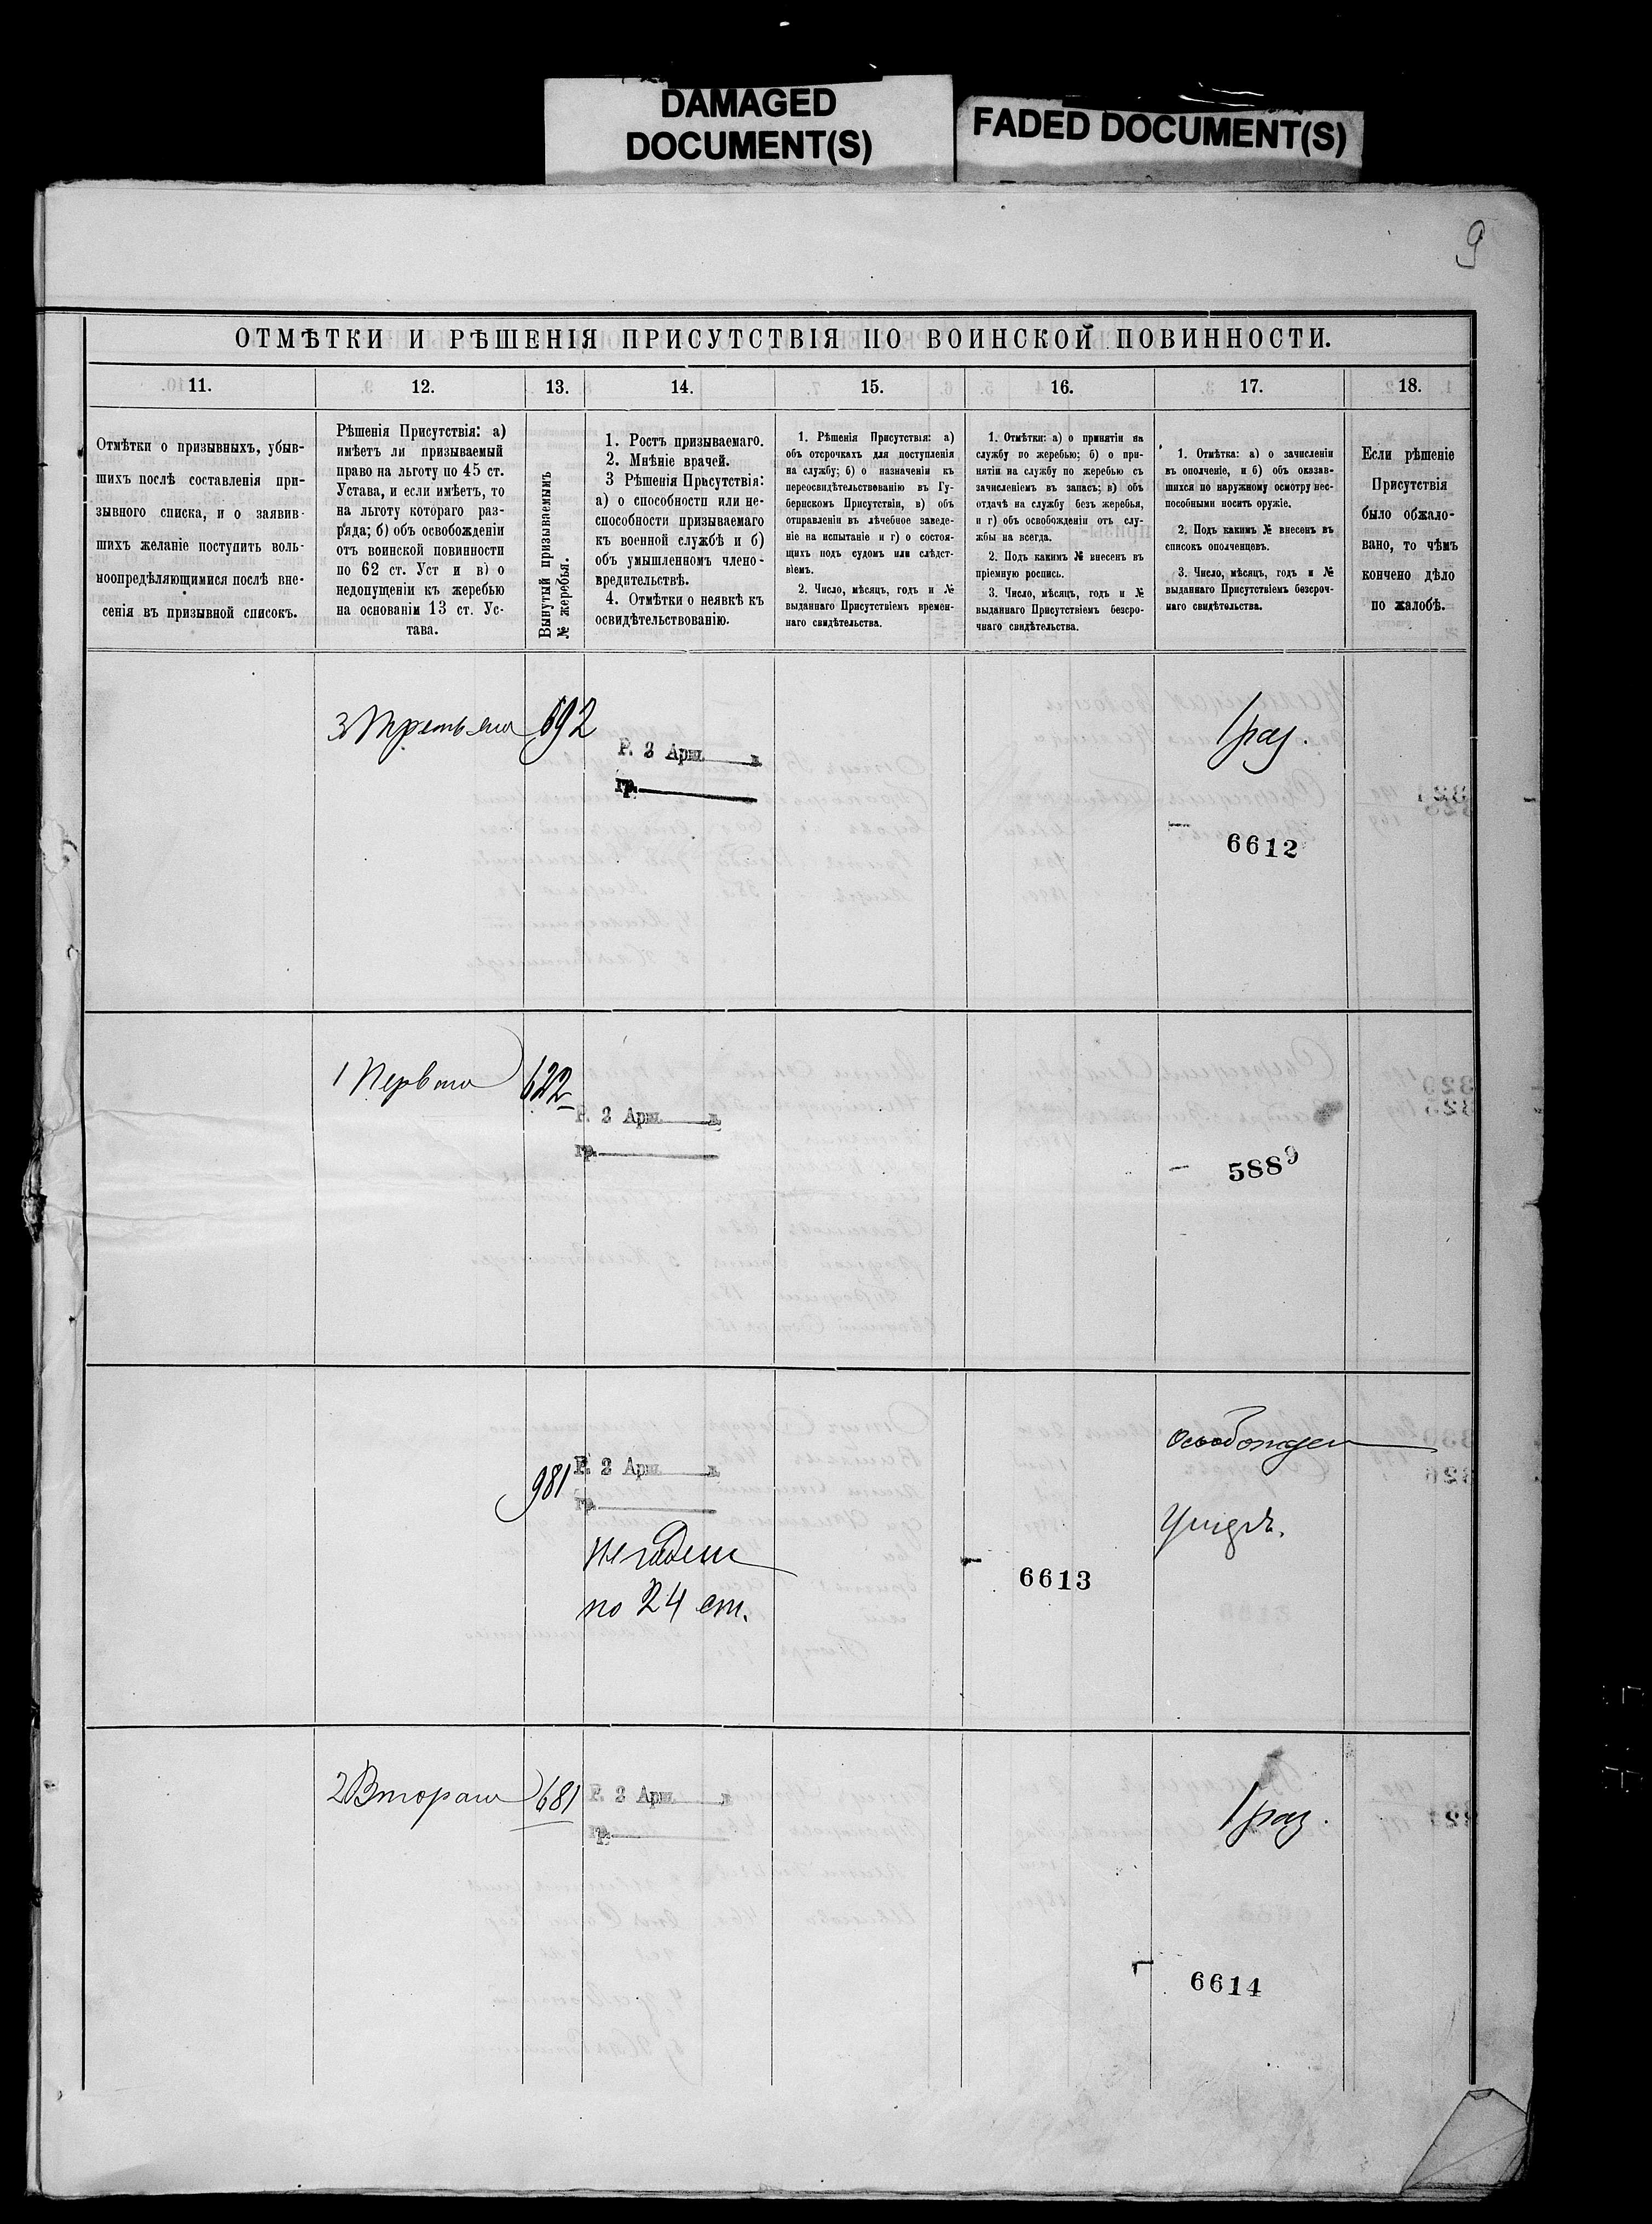 DAMAGED
DOCUMENT(S)
FADED DOCUMENT(S)
9
ОТМѢТКИ И РѢШЕНІЯ ПРИСУТСТВІЯ ПО ВОИНСКОЙ ПОВИННОСТИ.
11.
12.
13.
14.
15.
16.
17.
18.
Отмѣтки о призывныхъ, убыв-
шихъ послѣ составленія при-
зывного списка, и о заявив-
шихъ желаніе поступить воль-
ноопредѣляющимися послѣ вне-
сенія въ призывной списокъ.
Рѣшенія Присутствія: а)
имѣетъ ли призываемый
право на льготу по 45 ст.
Устава, и если имѣетъ, то
на льготу котораго раз-
ряда; б) объ освобожденіи
отъ воинской повинности
по 62 ст. Уст и в) о
недопущеніи къ жеребью
на основаніи 13 ст. Ус-
тава.
Вынутый призываемымъ
№ жеребья.
1. Ростъ призываемаго.
2. Мнѣніе врачей.
3 Рѣшенія Присутствія:
а) о способности или не-
способности призываемаго
къ военной службѣ и б)
объ умышленномъ члено-
вредительствѣ.
4. Отмѣтки о неявкѣ къ
освидѣтельствованію.
1. Рѣшенія Присутствія: а)
объ отсрочкахъ для поступленія
на службу; б) о назначеніи къ
переосвидѣтельствованію въ Гу-
бернскомъ Присутствіи, в) объ
отправленіи въ лѣчебное заведе-
ніе на испытаніе и г) о состоя-
щихъ подъ судомъ или слѣдст-
віемъ.
2. Число, мѣсяцъ, годъ и №
выданнаго Присутствіемъ времен-
наго свидѣтельства.
1. Отмѣтки: а) о принятіи на
службу по жеребью; б) о при-
нятіи на службу по жеребью съ
зачисленіемъ въ запасъ; в) объ
отдачѣ на службу безъ жеребья,
и г) объ освобожденіи отъ слу-
жбы на всегда.
2. Подъ какимъ № внесенъ въ
пріемную роспись.
3. Число, мѣсяцъ, годъ и №
выданнаго Присутствіемъ безсро-
чнаго свидѣтельства.
1. Отмѣтка: а) о зачисленіи
въ ополченіе, и б) объ оказав-
шихся по наружному осмотру нес-
пособными носить оружіе.
2. Подъ какимъ № внесенъ въ
списокъ ополченцевъ.
3. Число, мѣсяцъ, годъ и №
выданнаго Присутствіемъ безсроч-
наго свидѣтельства.
Если рѣшеніе
Присутствія
было обжало-
вано, то чѣмъ
кончено дѣло
по жалобѣ.
3 Третьяго
692
Р. 2 Арш. в.
гр.
1 раз.
6612
1 Перваго
622
Р. 2 Арш. в.
гр.
5889
981
Р. 2 Арш. в.
гр.
Негоденъ
по 24 ст.
6613
Освобожден
2 Второго
681
Р. 2 Арш. в.
гр.
1 раз.
6614